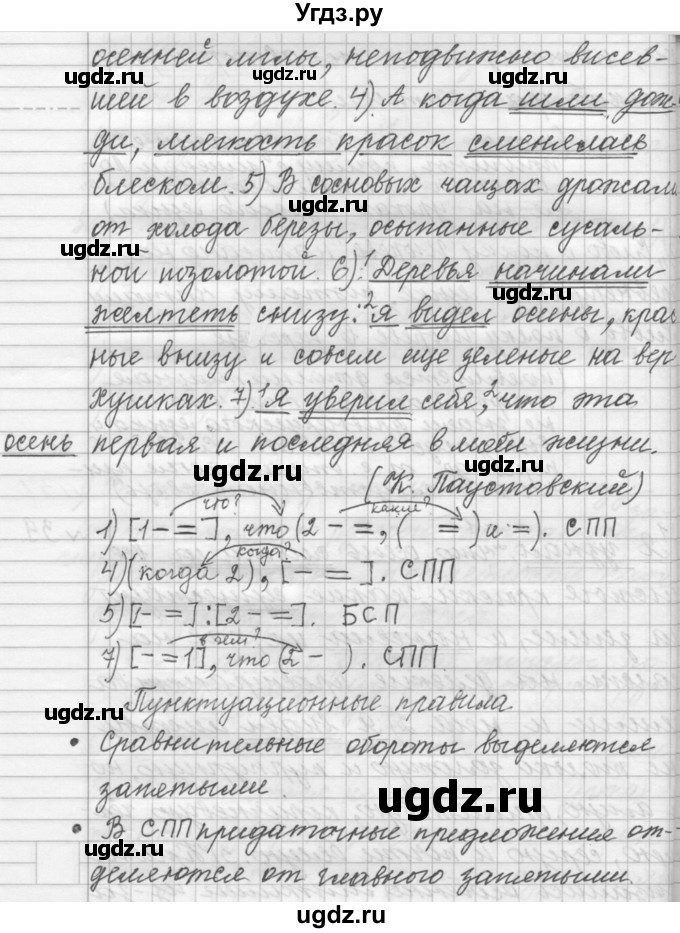 Угдз.ру
осенней мглы, неподвижно висев-
шей в воздухе. 4). А когда шли дож-
ди, мягкость красок сменялась
блеском. 5) В сосновых чащах дрожали
от холода березы, осыпанные сусаль-
ной позолотой. 6).¹ Деревья начинали
желтеть снизу: ²я видел осины, крас
ные внизу и совсем еще зеленые на вер
хушках. 7).¹ Я уверил себя, ²что эта
осень первая и последняя в моей жизни.
(К. Паустовский)
что? какие?
1) [1 – =], что (2 – =, ( = ) и =). СПП
когда?
4) (когда 2), [ – = ]. СПП
5) [1– =] : [2 – =]. БСП
в чем?
7) [ – =1], что (2 – ). СПП.
Пунктуационные правила
• Сравнительные обороты выделяются
запятыми.
• В СПП придаточные предложения от-
деляются от главного запятыми.
ugdz.ru
ugdz.ru
ugdz.ru
ugdz.ru
ugdz.ru
ugdz.ru
ugdz.ru
ugdz.ru
ugdz.ru
ugdz.ru
ugdz.ru
ugdz.ru
ugdz.ru
ugdz.ru